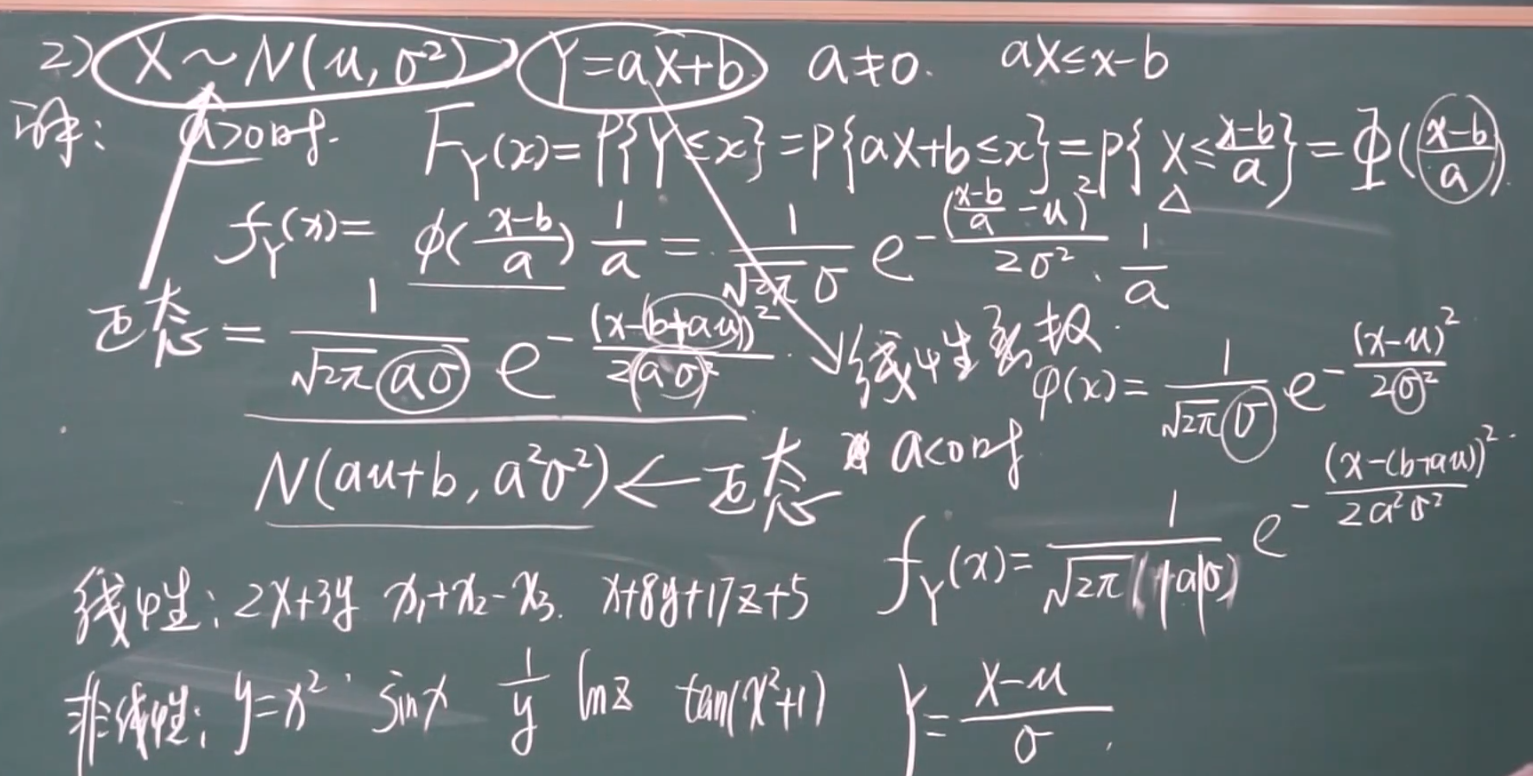 2) X~N(u, σ²) Y=aX+b a≠0. aX≤x-b
解: a>0时. F_Y(x)=P{Y≤x}=P{aX+b≤x}=P{X≤(x-b)/a}=Φ((x-b)/a).
f_Y(x)= φ((x-b)/a) 1/a = 1/(√2π σ) e^-((x-b)/a - u)²/2σ² · 1/a
正态 = 1/(√2π aσ) e^-(x-(b+au))²/2(aσ)² .
线性 φ(x)= 1/(√2π σ) e^-(x-u)²/2σ²
N(au+b, a²σ²) ← 正态 a<0时
f_Y(x)= 1/(√2π(|a|σ)) e^-(x-(b+au))²/2a²σ²
线性: 2x+3y x₁+x₂-x₃. x+8y+17z+5
非线性: y=x² sinx 1/y lnz tan(x²+1) Y= (X-u)/σ .